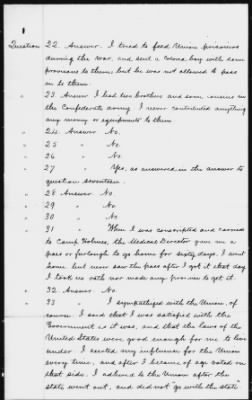 Question 22. Answer. I tried to feed Union prisoners
during the war, and sent a colored boy with some
provisions to them, but he was not allowed to pass
in to them.
" 23. Answer. I had two brothers and some cousins in
the Confederate army. I never contributed anything
any money or equipments to them.
" 24. Answer. No.
" 25 " No
" 26 " No.
" 27 " Yes, as answered in the answer to
question seventeen.
" 28. Answer. No.
" 29 " No
" 30 " No
" 31 " When I was conscripted and carried
to Camp Holmes, the Medical Director gave me a
pass or furlough to go home for sixty days. I went
home but never saw the pass after I got it that day.
I took no oath nor made any promise to get it.
" 32. Answer. No.
" 33 " I sympathized with the Union, of
course. I said that I was satisfied with the
Government as it was, and that the laws of the
United States were good enough for me to live
under. I exerted my influence for the Union
every time, and after I became of age voted on
that side. I adhered to the Union after the
state went out, and did not "go with the state"